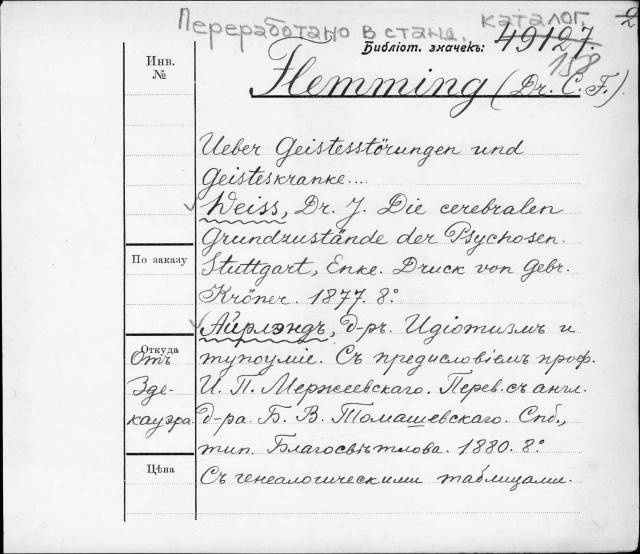 Переработано в станд. каталог.
2
Библіот. значекъ: 49127.
158
Инв.
№
Flemming (Dr. C. F.).
Ueber Geistesstörungen und
Geisteskranke....
Weiss, Dr. J. Die cerebralen
Grundzustände der Psychosen.
По заказу
Stuttgart, Enke. Druck von Gebr.
Kröner. 1877. 8°.
Айрлэндъ, д-ръ. Идіотизмъ и
Откуда
Отъ
тупоуміе. Съ предисловіемъ проф.
Зде-
И. П. Мержеевскаго. Перев. съ англ.
кауэра.
д-ра. Б. В. Томашевскаго. Спб.,
тип. Благосвѣтлова. 1880. 8°.
Цѣна
Съ генеалогическими таблицами.